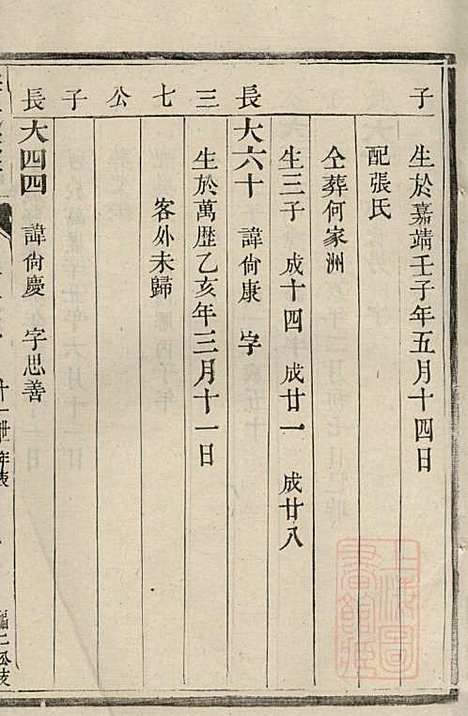 子
生於嘉靖壬子年五月十四日
配張氏
仝葬何家洲
生三子　成十四　成廿一　成廿八
長
大六十　諱尙康　字
生於萬歷乙亥年三月十一日
三七公子
客外未歸
長
大四四　諱尙慶　字思善
上海圖書館藏